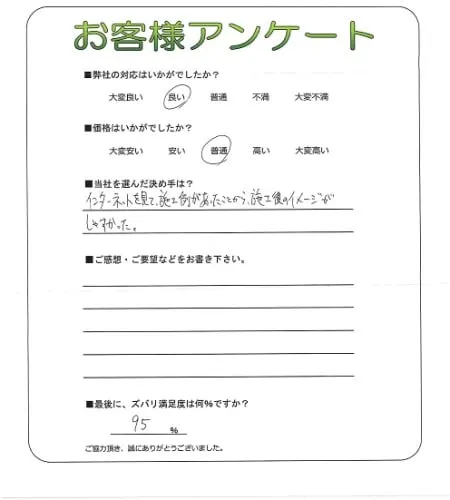 お客様アンケート
■弊社の対応はいかがでしたか?
大変良い 良い 普通 不満 大変不満
■価格はいかがでしたか?
大変安い 安い 普通 高い 大変高い
■当社を選んだ決め手は?
インターネットを見て、施工例があったことから、施工後のイメージが
しやすかった。
■ご感想・ご要望などをお書き下さい。
■最後に、ズバリ満足度は何%ですか?
95 %
ご協力頂き、誠にありがとうございました。